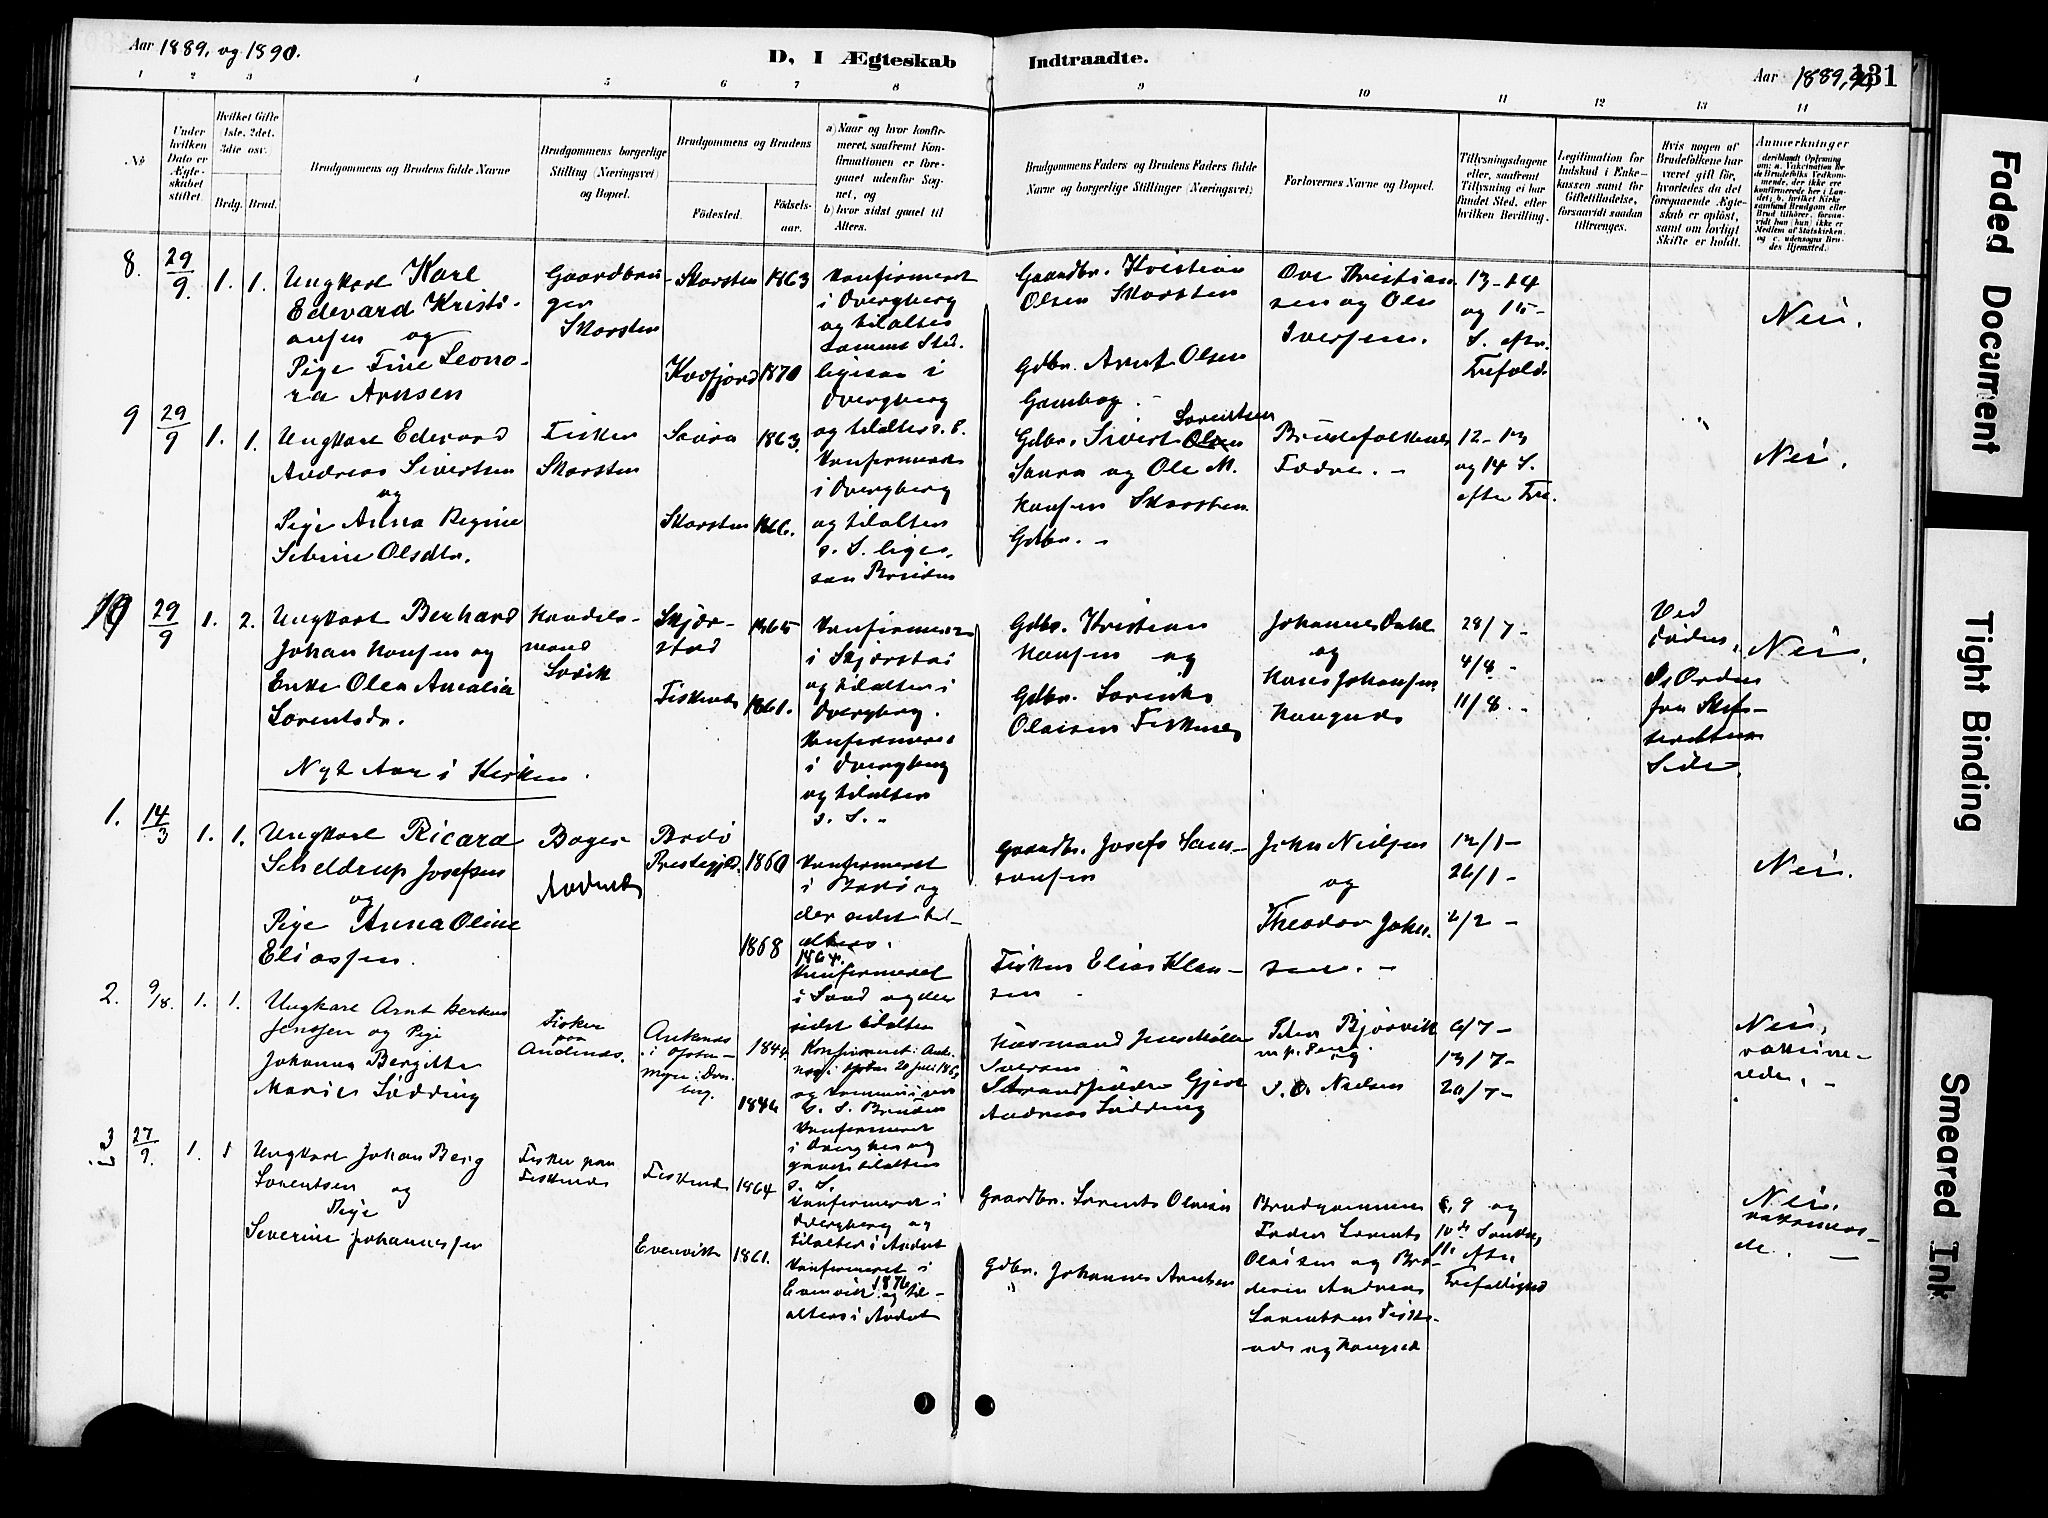 Aar 1889, og 1890.
D, I Ægteskab Indtraadte.
Aar 1889,
131
1 2 3 4 5 6 7 8 9 10 11 12 13 14
No
Under hvilken Dato er Ægteskabet stiftet.
Hvilket Gifte (1ste, 2det, 3die osv.
Brdg. Brud.
Brudgommens og Brudens fulde Navne
Brudgommens borgerlige Stilling (Næringsvei) og Bopæl.
Brudgommens og Brudens
Födested.
Födselsaar.
a) Naar og hvor konfirmeret, saafremt Konfirmationen er foregaaet udenfor Sognet, og
b) hvor sidst gaaet til Alters.
Brudgommens Faders og Brudens Faders fulde Navne og borgerlige Stillinger (Næringsvei)
Forlovernes Navne og Bopæl.
Tillysningsdagene eller, saafremt Tillysning ei har fundet Sted, efter hvilken Bevilling.
Legitimation for Indskud i Enkekassen samt for Giftetilladelse, forsaavidt saadan tiltrænges.
Hvis nogen af Brudefolkene har været gift för, hvorledes da det foregaaende Ægteskab er oplöst, samt om lovligt Skifte er holdt.
Anmerkninger
8. 29/9. 1. 1.
Ungkarl Karl
Edevard Kristi-
ansen og
Pige Tine Leono-
ra Arnsen
Gaardbru-
ger
Skarsten
Skarsten 1863
Kvæfjord 1870
Konfirmeret
i Dverberg
og tilalters
samme Sted.
ligesaa i
Dverberg
og tilalters s. S.
Gaardbr. Kristian
Olsen Skarsten
Gdbr. Arnt Olsen
Ove Kristian
sen og Ole
Iversen.
13-14
og 15-
S. eftr.
Trefold.
Nei.
9 29/9 1. 1.
Ungkarl Edevard
Andreas Sivertsen
og
Pige Anna Regine
Sebrine Olsdtr.
Fisker
Skarsten
Saura 1863.
Skarsten 1866.
Konfirmeret
i Dverberg
og tilalters
s. S. liges
saa Bruden
Gdbr. Sivert Olsen Lorentsen
Saura og Ole M.
Hansen Skarsten
Gdbr. -
Brudefolkenes
Fædre. -
12-13
og 14 S.
efter Tre.
Nei.
10 29/9 1. 2.
Ungkarl Benhard
Johan Hansen og
Enke Olea Amalia
Lorentsdr.
Handels-
mand
Sovik
Skjær-
stad 1865
Fiskenes 1861.
Konfirmeret
i Skjerstad
og tilalters i
Dverberg.
Konfirmeret
i Dverberg
og tilalters
s. S. -
Gdbr. Kristian
Hansen og
Gdbr. Lorents
Olaisen Fiskenes
Johannes Dahl
og
Hans Johansen
Haugnes
28/7 -
4/8. -
11/8. -
Ved
Døden,
Nei.
Nyt Aar i Kirken.
1. 14/3 1. 1.
Ungkarl Ricard
Scheldrup Josefsen
og
Pige Anna Oline
Eliassen.
Bager
Andenes
Bodø
Prestegjeld. 1860
1868
Konfirmeret
i Bodø og
der sidst til-
alters.
1864.
Konfirmeret
i Sand og der
sidst tilalters
Gaardbr. Josefs Sam-
sonsen
Fisker Elias Klau-
sen
John Nielsen
og
Theodor John-
sen. -
12/1-
26/1-
2/2-
Nei.
2. 9/8. 1. 1.
Ungkarl Arnt Berkus
Jenssen og Pige
Johanna Bergitte
Marie Lødding
Fisker
paa
Andenes.
1844
1846
og kommuniceret
s. S. Bruden
Konfirmeret
i Dverberg og
ganske tilalters
s. S.
Husmand Jens Møller
Iversen
Strandsidder Gjert
Andreas Lødding
Peter Bjørvik
og
I. O. Nielsen
6/7-
13/7-
20/7-
Nei,
vaksine-
rede, -
3 27/9. 1. 1
Ungkarl Johan Berg
Lorentsen og
Pige
Severine Johannessen
Fisker paa
Fiskenes
Fiskenes 1864
Evenvik 1861.
Konfirmeret i
Dverberg og
tilalters i Andet
Konfirmeret i
Evenvik 1876 og til-
alters i Andet
Gaardbr. Lorents Olaisen
Gdbr. Johannes Arntsen
Brudgommens
Fader Lorents
Olaisen og Bro-
deren Andreas
Lorentsen Fiske-
nes og Haugnes
8, 9 og
10de Søndag
11. efter
Trefoldighed
Nei.
vaksinere-
de. -
Faded Document
Tight Binding
Smeared Ink